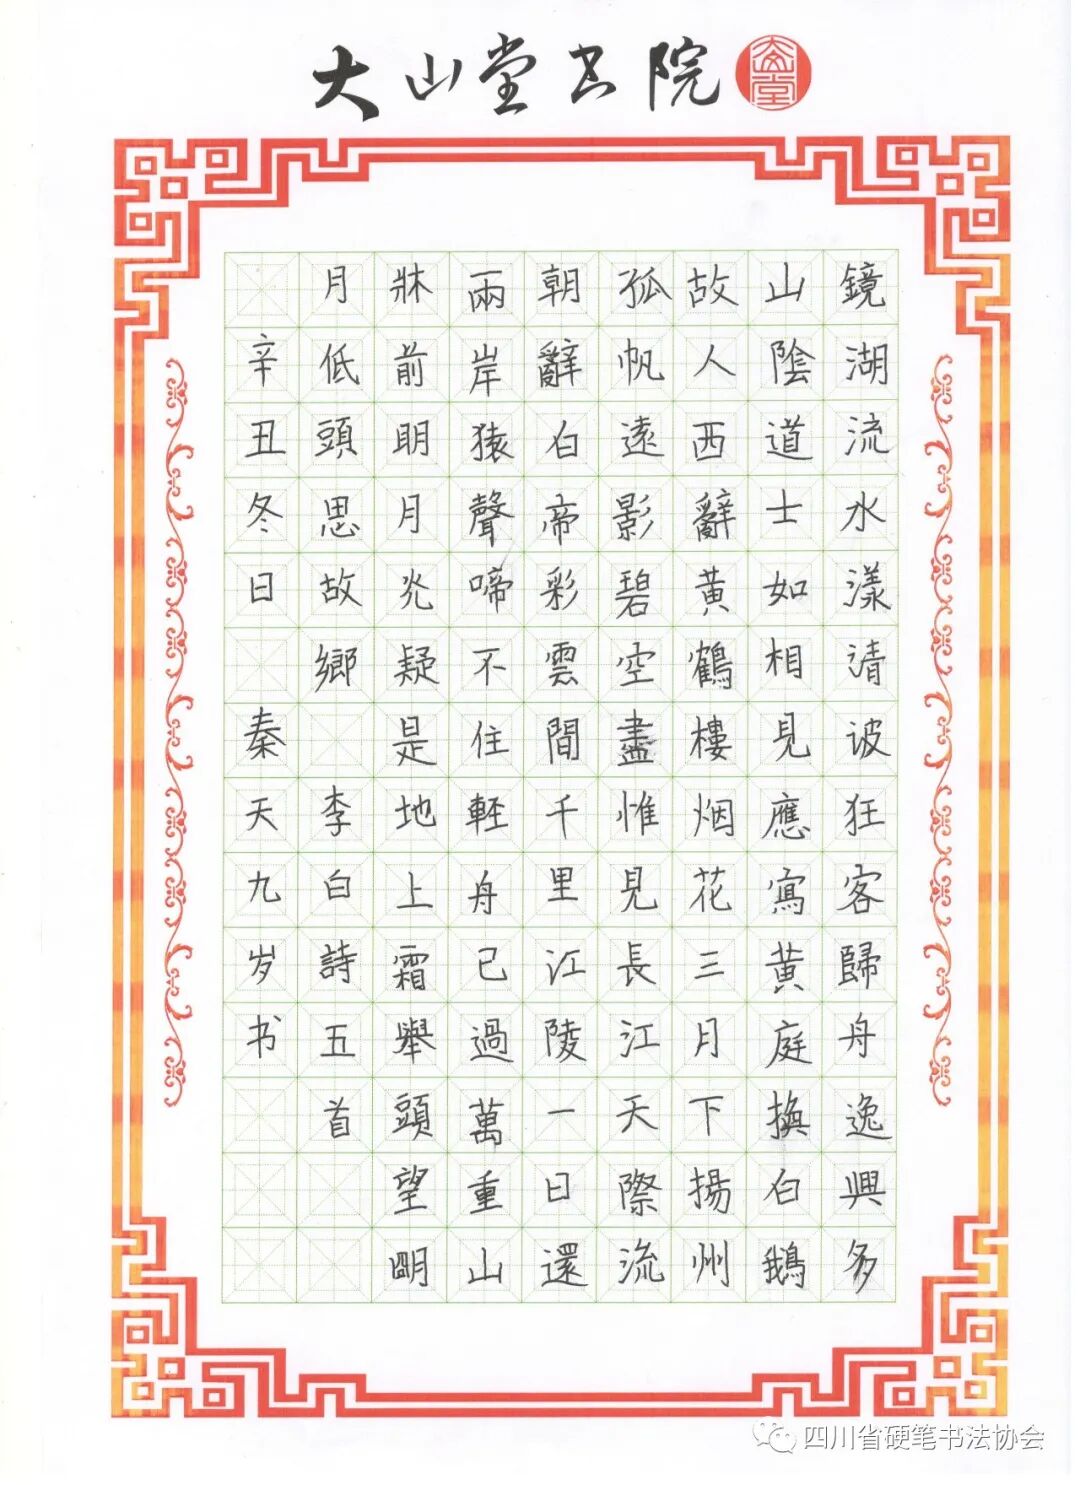 大山堂书院
大山堂
鏡湖流水漾清波狂客歸舟逸興多
山陰道士如相見應寫黄庭換白鵝
故人西辭黄鶴樓烟花三月下揚州
孤帆遠影碧空盡惟見長江天際流
朝辭白帝彩雲間千里江陵一日還
兩岸猿聲啼不住輕舟已過萬重山
牀前明月光疑是地上霜舉頭望明
月低頭思故鄉 李白詩五首
辛丑冬日 秦天九岁书
四川省硬笔书法协会